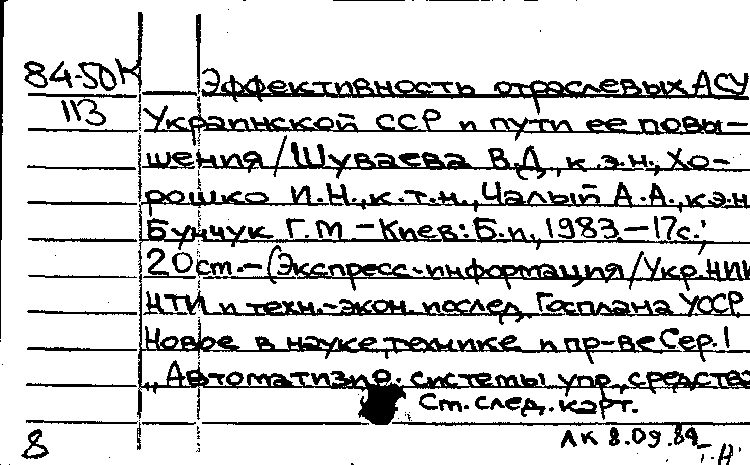 84-50К Эффективность отраслевых АСУ
113 Украинской ССР и пути ее повы-
шения / Шуваева В.Д., к.э.н., Хо-
рошко И.Н., к.т.н., Чалый А.А., к.э.н
Бунчук Г.М – Киев: Б.и., 1983. – 17с.;
20 см. – (Экспресс-информация / Укр.НИИ
НТИ и техн.-экон. исслед. Госплана УССР
Новое в науке, технике и пр-ве Сер. !
„Автоматизир. системы упр., средства
См. след. карт.
8 АК 8.09.84